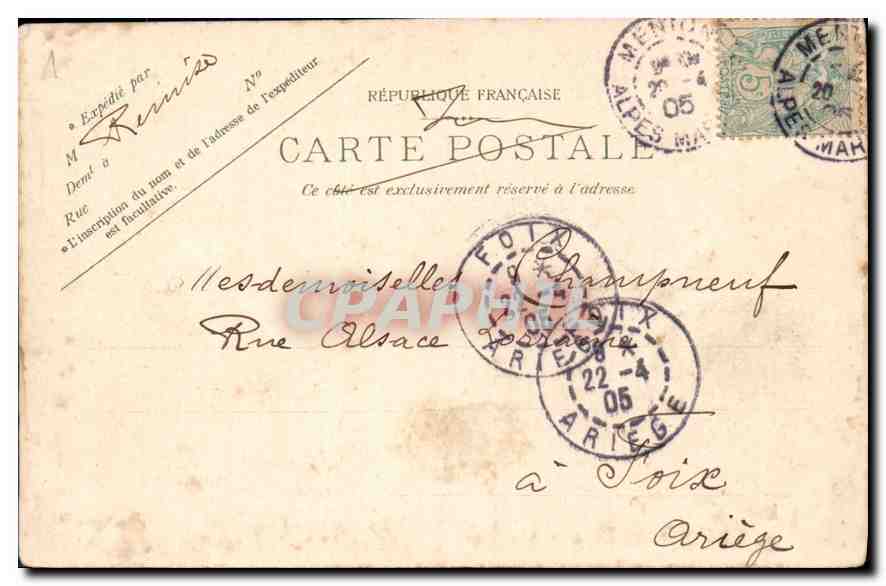 1
* Expédié par
M Remise
Demt à
Rue N°
* L'inscription du nom et de l'adresse de l'expéditeur
est facultative.
RÉPUBLIQUE FRANÇAISE
CARTE POSTALE
Ce côté est exclusivement réservé à l'adresse
MENTON
20 -4
05
ALPES MAR
5
MEN
20
ALPES MAR
FOIX
*
05
ARIE
Mesdemoiselles Champneuf
Rue Alsace Lorraine
OIX
*
22 -4
05
ARIÈGE
à Foix
Ariège
CPAPHIL